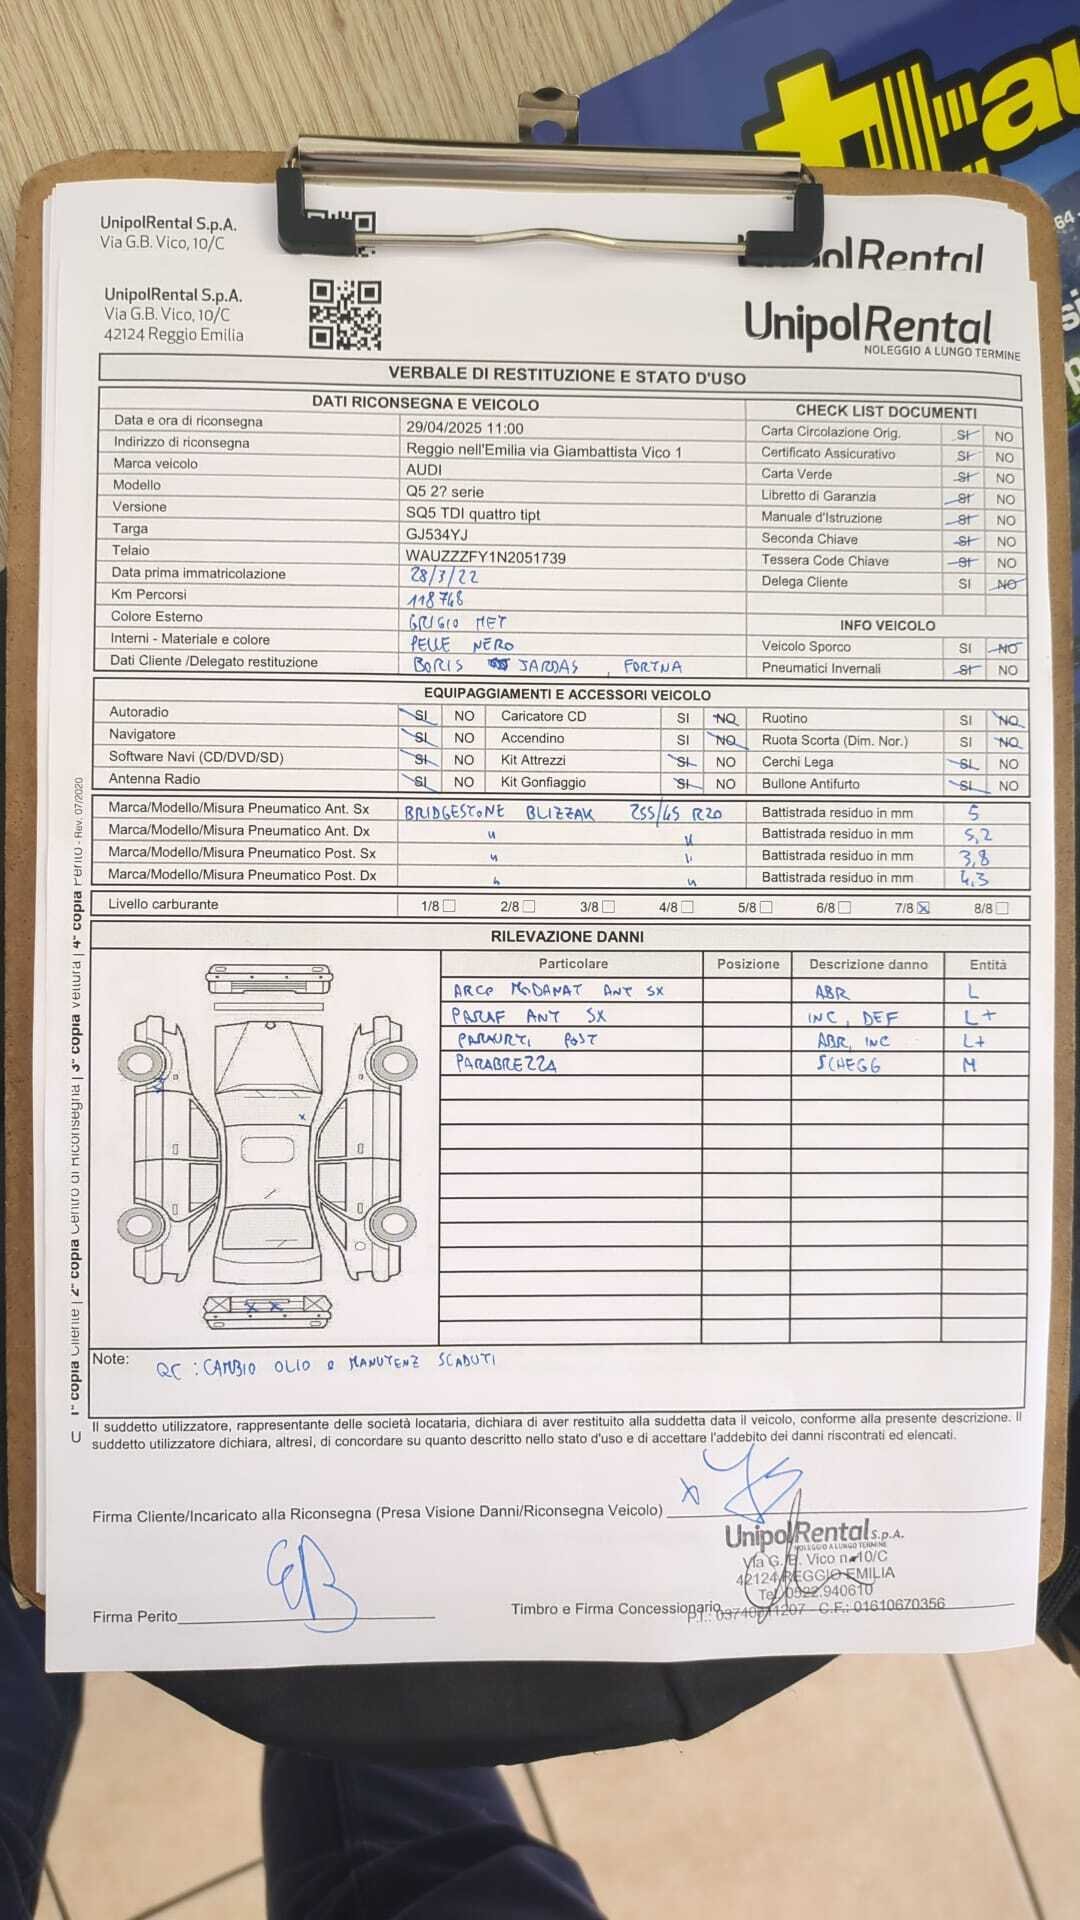 UnipolRental S.p.A.
Via G.B. Vico, 10/C
olRental
UnipolRental S.p.A.
Via G.B. Vico, 10/C
42124 Reggio Emilia
UnipolRental
NOLEGGIO A LUNGO TERMINE
VERBALE DI RESTITUZIONE E STATO D'USO
DATI RICONSEGNA E VEICOLO
Data e ora di riconsegna 29/04/2025 11:00
Indirizzo di riconsegna Reggio nell'Emilia via Giambattista Vico 1
Marca veicolo AUDI
Modello Q5 2? serie
Versione SQ5 TDI quattro tipt
Targa GJ534YJ
Telaio WAUZZZFY1N2051739
Data prima immatricolazione 28/3/22
Km Percorsi 118748
Colore Esterno GRIGIO MET
Interni - Materiale e colore PELLE NERO
Dati Cliente /Delegato restituzione BORIS JARDAS, FORTNA
CHECK LIST DOCUMENTI
Carta Circolazione Orig. SI NO
Certificato Assicurativo SI NO
Carta Verde SI NO
Libretto di Garanzia SI NO
Manuale d'Istruzione SI NO
Seconda Chiave SI NO
Tessera Code Chiave SI NO
Delega Cliente SI NO
INFO VEICOLO
Veicolo Sporco SI NO
Pneumatici Invernali SI NO
EQUIPAGGIAMENTI E ACCESSORI VEICOLO
Autoradio SI NO Caricatore CD SI NO Ruotino SI NO
Navigatore SI NO Accendino SI NO Ruota Scorta (Dim. Nor.) SI NO
Software Navi (CD/DVD/SD) SI NO Kit Attrezzi SI NO Cerchi Lega SI NO
Antenna Radio SI NO Kit Gonfiaggio SI NO Bullone Antifurto SI NO
Marca/Modello/Misura Pneumatico Ant. Sx BRIDGESTONE BLIZZAK 255/45 R20 Battistrada residuo in mm 5
Marca/Modello/Misura Pneumatico Ant. Dx " " Battistrada residuo in mm 5,2
Marca/Modello/Misura Pneumatico Post. Sx " " Battistrada residuo in mm 3,8
Marca/Modello/Misura Pneumatico Post. Dx " " Battistrada residuo in mm 4,3
Livello carburante 1/8 2/8 3/8 4/8 5/8 6/8 7/8 8/8
RILEVAZIONE DANNI
Particolare Posizione Descrizione danno Entità
ARCO MODANAT ANT SX ABR L
PARAF ANT SX INC, DEF L+
PARAURTI POST ABR, INC L+
PARABREZZA SCHEGG M
Note: QC: CAMBIO OLIO e MANUTENZ SCADUTI
Il suddetto utilizzatore, rappresentante delle società locataria, dichiara di aver restituito alla suddetta data il veicolo, conforme alla presente descrizione. Il
suddetto utilizzatore dichiara, altresì, di concordare su quanto descritto nello stato d'uso e di accettare l'addebito dei danni riscontrati ed elencati.
Firma Cliente/Incaricato alla Riconsegna (Presa Visione Danni/Riconsegna Veicolo)
UnipolRental S.p.A.
NOLEGGIO A LUNGO TERMINE
Via G. B. Vico n. 10/C
42124 REGGIO EMILIA
Tel. 0522.940610
C.F.: 01610670356
Firma Perito
Timbro e Firma Concessionario
1° copia Cliente | 2° copia Centro di Riconsegna | 3° copia Vettura | 4° copia Perito - Rev. 07/2020